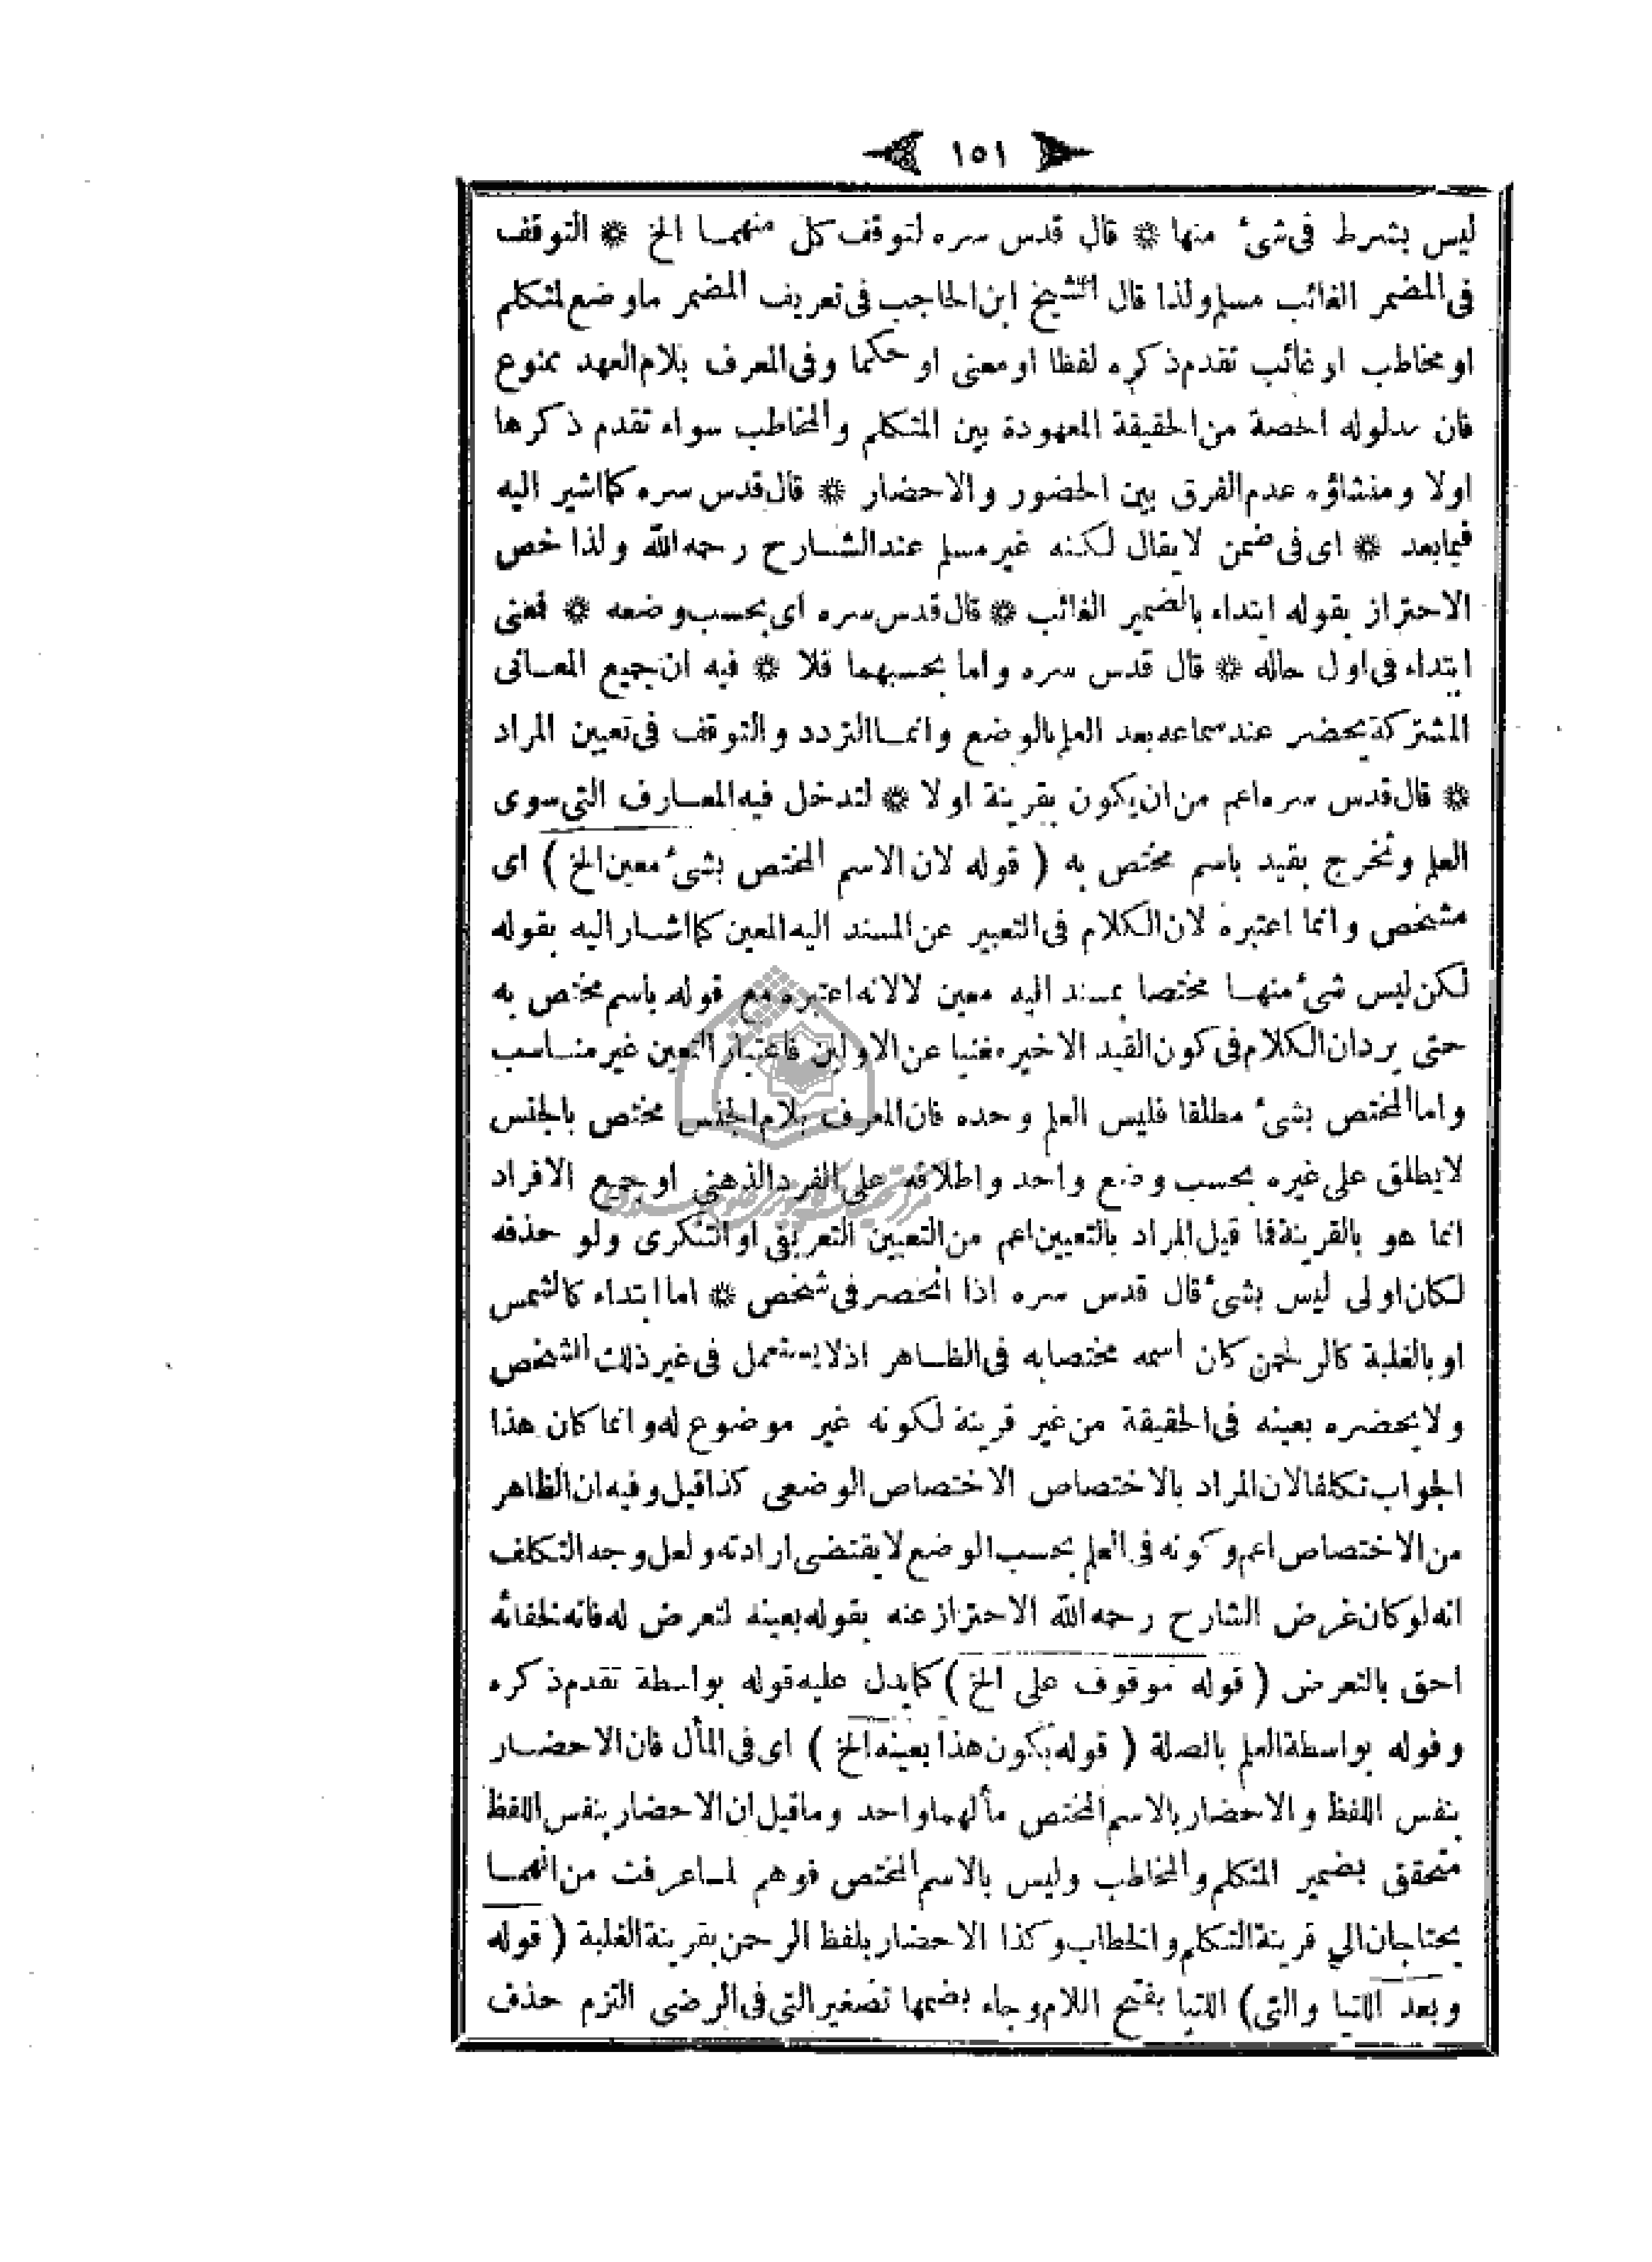 ١٥١
ليس بشرط فى شئ منها * قال قدس سره لتوقف كل منهما الخ * التوقف
فى المضمر الغائب مسلم ولذا قال الشيخ ابن الحاجب فى تعريف المضمر ماوضع لمتكلم
او مخاطب او غائب تقدم ذكره لفظا او معنى او حكما وفى المعرف بلام العهد ممنوع
فان مدلوله الحصة من الحقيقة المعهودة بين المتكلم والمخاطب سواء تقدم ذكرها
اولا ومنشاؤه عدم الفرق بين الحضور والاحضار * قال قدس سره كما اشير اليه
فيما بعد * اى فى ضمن لا يقال لكنه غير مسلم عند الشارح رحمه الله ولذا خص
الاحتراز بقوله ابتداء بالضمير الغائب * قال قدس سره اى بحسب وضعه * فمعنى
ابتداء فى اول حاله * قال قدس سره واما بحسبهما فلا * فيه ان جميع المعانى
المشتركة يحضر عند سماعه بعد العلم بالوضع وانما التردد والتوقف فى تعيين المراد
* قال قدس سره اعم من ان يكون بقرينة اولا * لتدخل فيه المعارف التى سوى
العلم وتخرج بقيد باسم مختص به ( قوله لان الاسم المختص بشئ معين الخ ) اى
مشخص وانما اعتبره لان الكلام فى التعبير عن المسند اليه المعين كما اشار اليه بقوله
لكن ليس شئ منها مختصا بمسند اليه معين لا لانه اعتبره مع قوله باسم مختص به
حتى يرد ان الكلام فى كون القيد الاخير مغنيا عن الاولين فاعتبار التعين غير مناسب
واما المختص بشئ مطلقا فليس العلم وحده فان المعرف بلام الجنس مختص بالجنس
لا يطلق على غيره بحسب وضع واحد واطلاقه على الفرد الذهنى او جميع الافراد
انما هو بالقرينة فما قيل المراد بالتعيين اعم من التعيين التعريفى او التنكرى ولو حذفه
لكان اولى ليس بشئ قال قدس سره اذا انحصر فى شخص * اما ابتداء كالشمس
او بالغلبة كالرحمن كان اسمه مختصا به فى الظاهر اذ لا يستعمل فى غير ذلك الشخص
ولا يحضره بعينه فى الحقيقة من غير قرينة لكونه غير موضوع له وانما كان هذا
الجواب تكلفا لان المراد بالاختصاص الاختصاص الوضعى كذا قيل وفيه ان الظاهر
من الاختصاص اعم وكونه فى العلم بحسب الوضع لا يقتضى ارادته ولعل وجه التكلف
انه لو كان غرض الشارح رحمه الله الاحتراز عنه بقوله بعينه لتعرض له فانه لخفائه
احق بالتعرض ( قوله موقوف على الخ ) كما يدل عليه قوله بواسطة تقدم ذكره
وقوله بواسطة العلم بالصلة ( قوله بكون هذا بعينه الخ ) اى فى المأل فان الاحضار
بنفس اللفظ والاحضار بالاسم المختص مألهما واحد وما قيل ان الاحضار بنفس اللفظ
متحقق بضمير المتكلم والمخاطب وليس بالاسم المختص فوهم لما عرفت من انهما
يحتاجان الى قرينة التكلم والخطاب وكذا الاحضار بلفظ الرحمن بقرينة الغلبة ( قوله
وبعد اللتيا والتى) اللتيا بفتح اللام وجاء بضمها تصغير التى فى الرضى التزم حذف